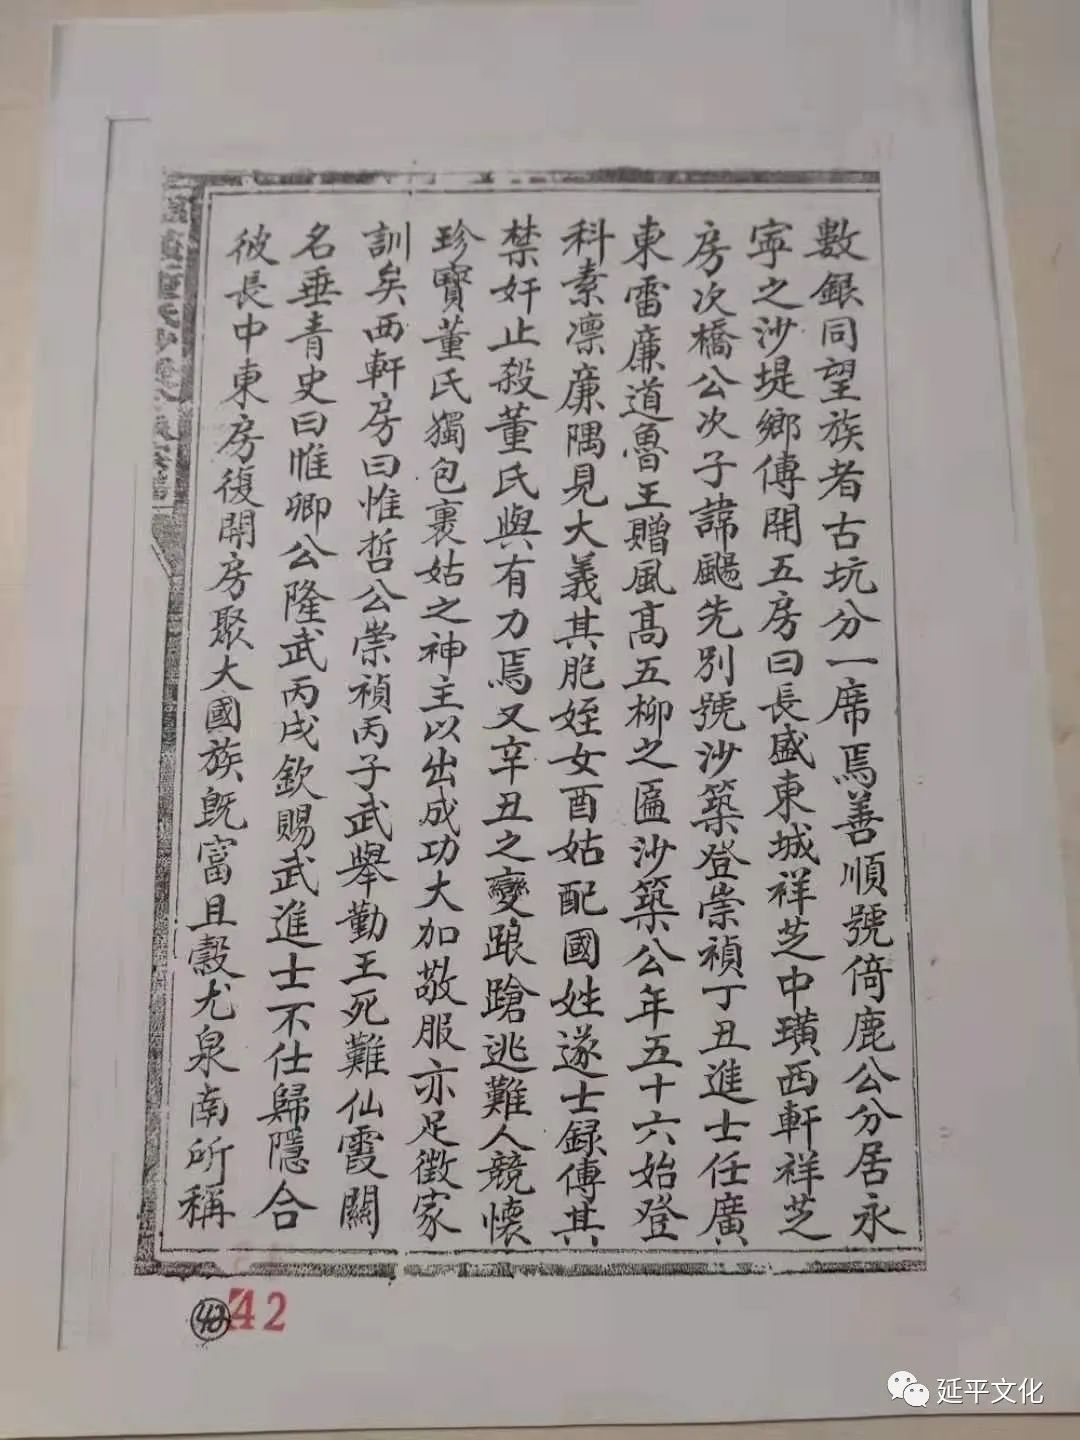 數銀同望族者古坑分一席焉善順號倚鹿公分居永
寕之沙堤鄉傳開五房曰長盛東城祥芝中璜西軒祥芝
房次橋公次子諱颺先別號沙築登崇禎丁丑進士任廣
東雷廉道魯王贈風高五柳之匾沙築公年五十六始登
科素凛廉隅見大義其胞姪女酉姑配國姓遂士録傳其
禁奸止殺董氏與有力焉又辛丑之變踉蹌逃難人競懷
珍寶董氏獨包裹姑之神主以出成功大加敬服亦足徵家
訓矣西軒房曰惟哲公崇禎丙子武舉勤王死難仙霞關
名垂青史曰惟卿公隆武丙戌欽賜武進士不仕歸隱合
彼長中東房復開房聚大國族旣富且穀尤泉南所稱
42
42
延平文化